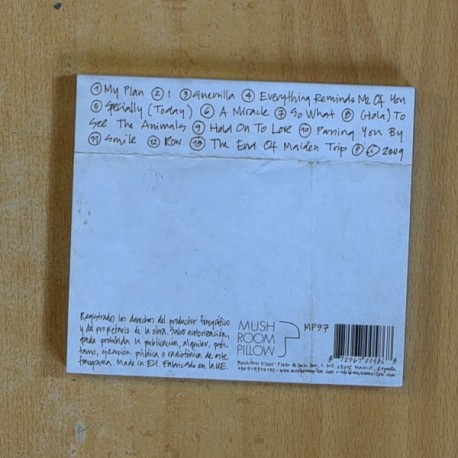 ① My Plan ② I ③ Guerrilla ④ Everything Reminds Me Of You
⑤ Specially (Today) ⑥ A Miracle ⑦ So What ⑧ (Hola) To
See The Animals ⑨ Hold On To Love ⑩ Passing You By
⑪ Smile ⑫ Row ⑬ The End Of Maiden Trip ℗ © 2009
Registrados los derechos del productor fonográfico
y del propietario de la obra. Salvo autorización,
queda prohibida la publicación, alquiler, prés-
tamo, ejecución pública o radiofónica de este
fonograma. Made in EU. Fabricado en la UE.
MUSH
ROOM
PILLOW
MP97